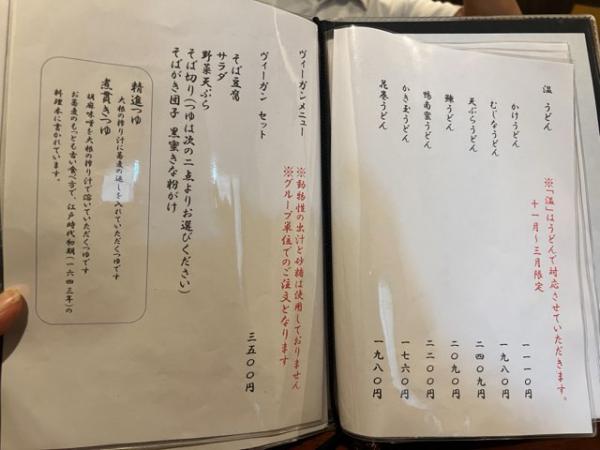 温 うどん
※「温」はうどんで対応させていただきます。
十一月～三月限定
かけうどん 一一一〇円
むじなうどん 一九八〇円
天ぷらうどん 二四〇九円
辣うどん 二〇九〇円
鴨南蛮うどん 二二〇〇円
かき玉うどん 一七六〇円
花巻うどん 一九八〇円
ヴィーガンメニュー
※動物性の出汁と砂糖は使用しておりません
※グループ単位でのご注文となります
ヴィーガン セット 三五〇〇円
そば豆腐
サラダ
野菜天ぷら
そば切り(つゆは次の二点よりお選びください)
そばがき団子 黒蜜きな粉がけ
精進つゆ
大根の搾り汁に蕎麦の返しを入れていただくつゆです
煮貫きつゆ
胡麻味噌を大根の搾り汁で溶いていただくつゆです
お蕎麦のもっとも古い食べ方で、江戸時代初期(一六四三年)の
料理本に書かれています。